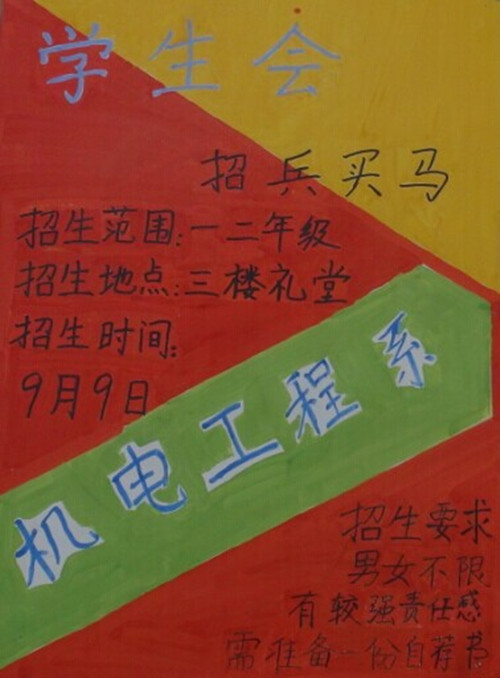 学生会
招兵买马
招生范围:一二年级
招生地点:三楼礼堂
招生时间:
9月9日
机电工程系
招生要求
男女不限
有较强责任感
需准备一份自荐书